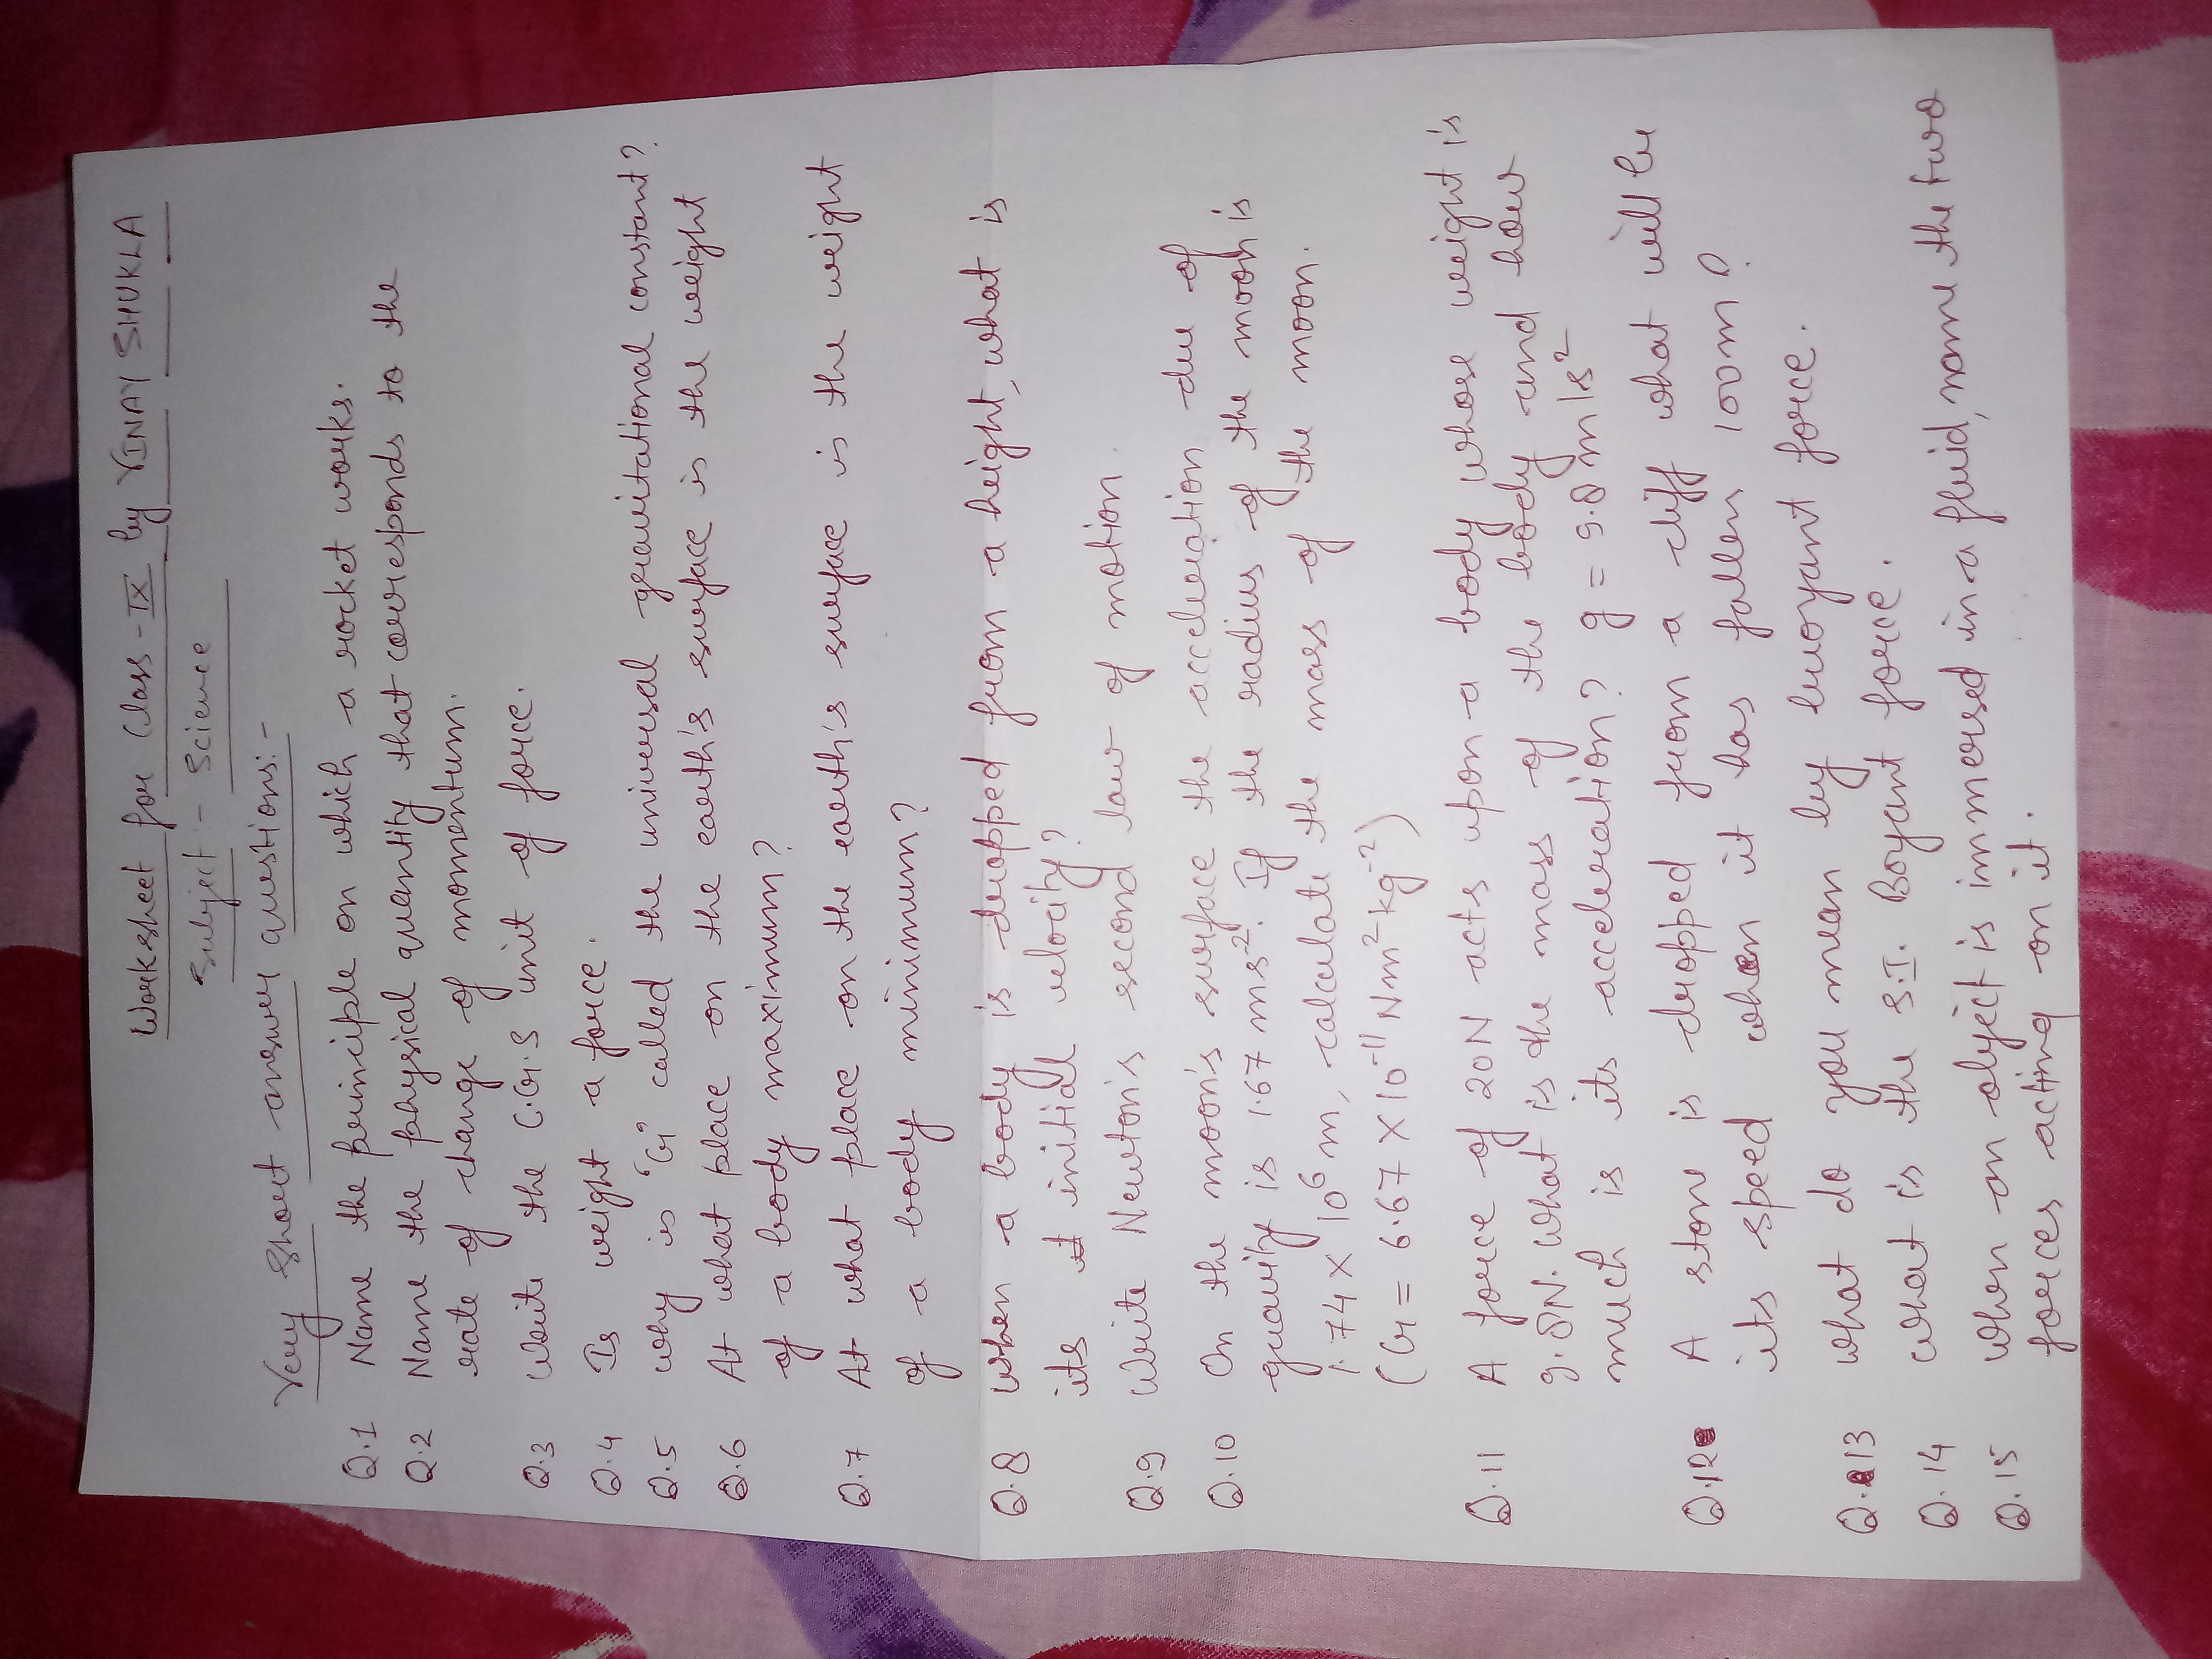 Worksheet for Class-IX by VINAY SHUKLA
Subject :- Science
Very Short answer questions:-
Q.1 Name the principle on which a rocket works.
Q.2 Name the physical quantity that corresponds to the
rate of change of momentum.
Q.3 Write the C.G.S unit of force.
Q.4 Is weight a force.
Q.5 why is "G" called the universal gravitational constant?
Q.6 At what place on the earth's surface is the weight
of a body maximum?
Q.7 At what place on the earth's surface is the weight
of a body minimum?
Q.8 When a body is dropped from a height, what is
its initial velocity?
Q.9 Write Newton's second law of motion.
Q.10 On the moon's surface the acceleration due of
gravity is 1.67 ms⁻². If the radius of the moon is
1.74 × 10⁶ m, calculate the mass of the moon.
(G = 6.67 × 10⁻¹¹ Nm² kg⁻²)
Q.11 A force of 20N acts upon a body whose weight is
9.8N. What is the mass of the body and how
much is its acceleration? g = 9.8 m/s²
Q.12 A stone is dropped from a cliff what will be
its speed when it has fallen 100m?
Q.13 what do you mean by buoyant force.
Q.14 what is the S.I. Boyant force.
Q.15 when an object is immersed in a fluid, name the two
forces acting on it.